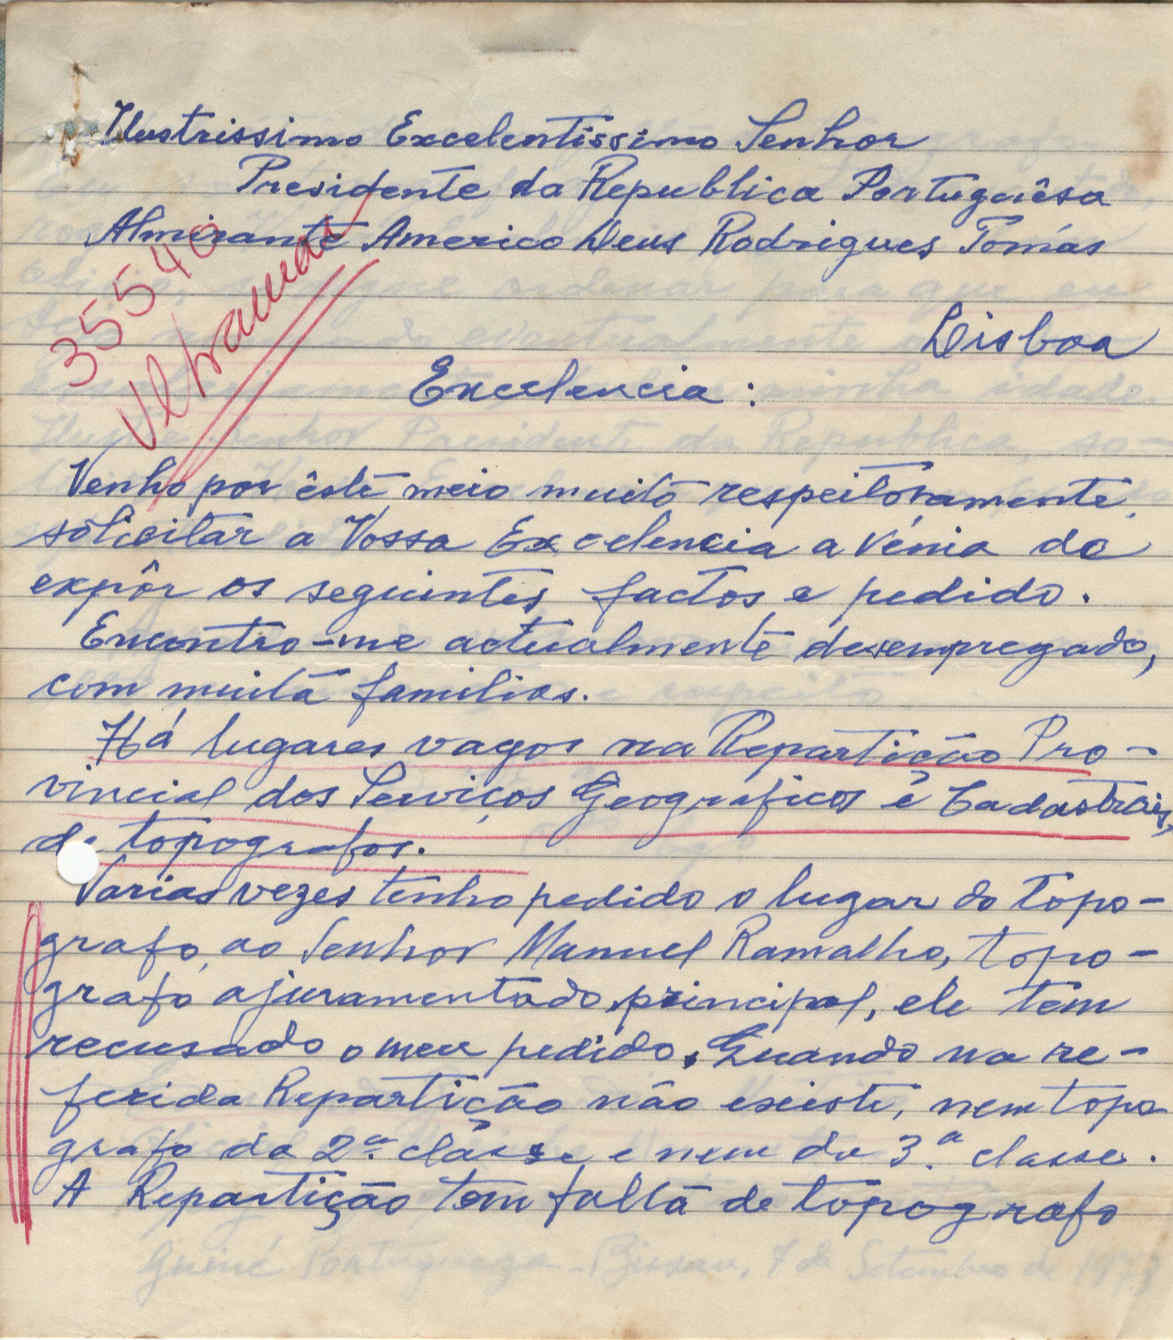 Ilustrissimo Excelentissimo Senhor
Presidente da Republica Portuguêsa
Almirante Americo Deus Rodrigues Tomás
35540
Ultramar
Lisboa
Excelencia :
Venho por êste meio muito respeitosamente,
solicitar a Vossa Excelencia a vénia de
expôr os seguintes factos e pedido.
Encontro-me actualmente desempregado,
com muita familias.
Há lugares vagos na Repartição Pro-
vincial dos Serviços Geograficos e Cadastrais,
de topografos.
Varias vezes tenho pedido o lugar do topo-
grafo, ao Senhor Manuel Ramalho, topo-
grafo ajuramentado principal, ele tem
recusado o meu pedido. Quando na re-
ferida Repartição não existe, nem topo
grafo da 2.ª classe e nem da 3.ª classe.
A Repartição tem falta de topografo
Guiné Portugueza - Bissau, 7 de Setembro de